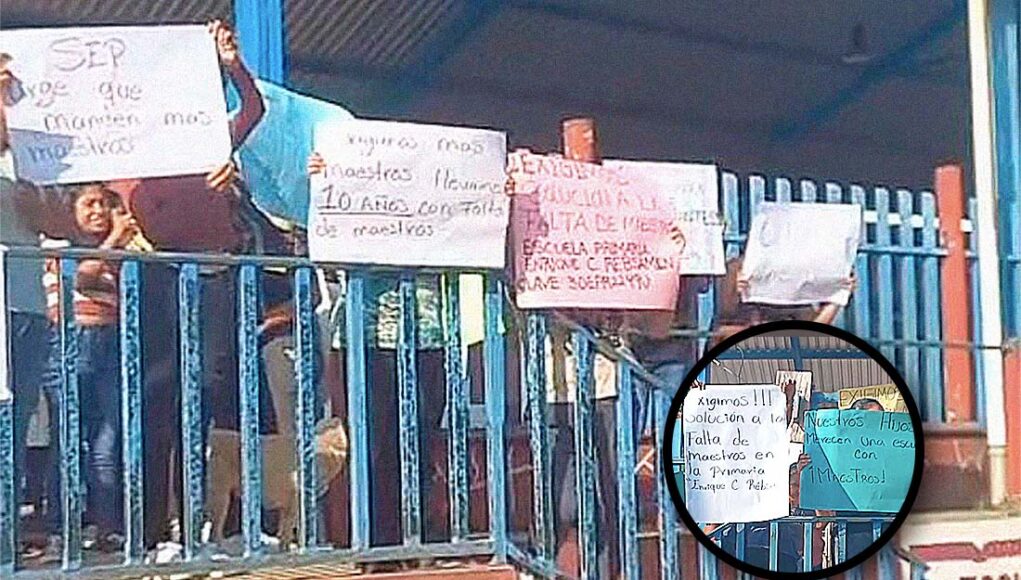 SEP
urge que
manden mas
maestros
xigimos mas
maestros llevamos
10 AÑOS con Falta
de maestros
EXIGIMOS
SOLUCION A LA
FALTA DE MAESTROS
ESCUELA PRIMARIA
ENRIQUE C. REBSAMEN
CLAVE 30EPR2249U
xigimos!!!
Solución a la
Falta de
maestros en
la Primaria
Enrique C Rébsa
EXIGIMOS
Nuestros Hijos
Merecen una escu
con
¡MAESTROS!